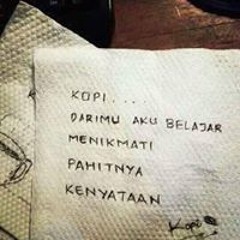 KOPI....
DARIMU AKU BELAJAR
MENIKMATI
PAHITNYA
KENYATAAN
Kopi